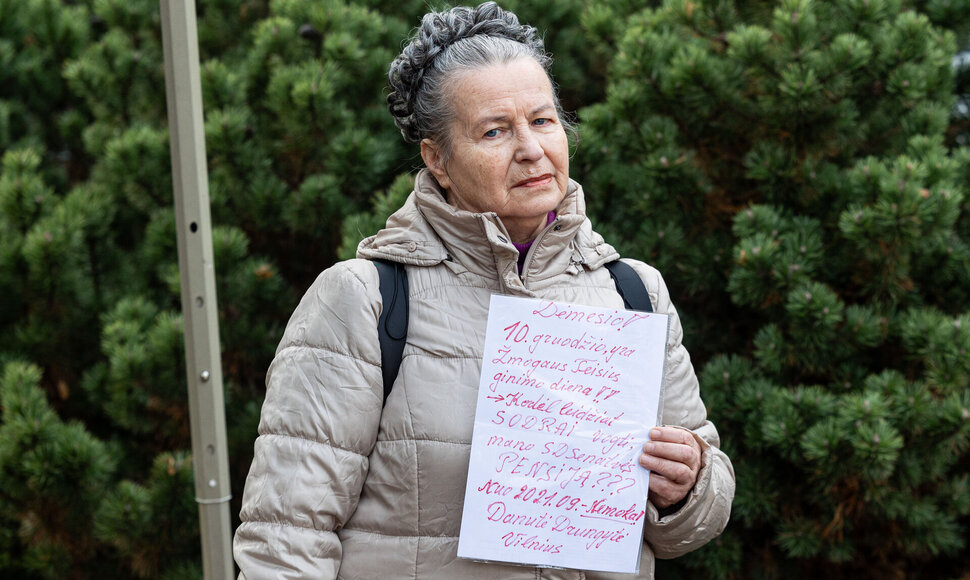 Dėmesio!
10. gruodžio, yra
Žmogaus Teisių
gynimo diena !!
→ Kodėl leidžiat
SODRAI vogti
mano SD Senatvės
PENSIJĄ???
Nuo 2021.09.- Nemoka!
Danutė Drungytė
Vilnius